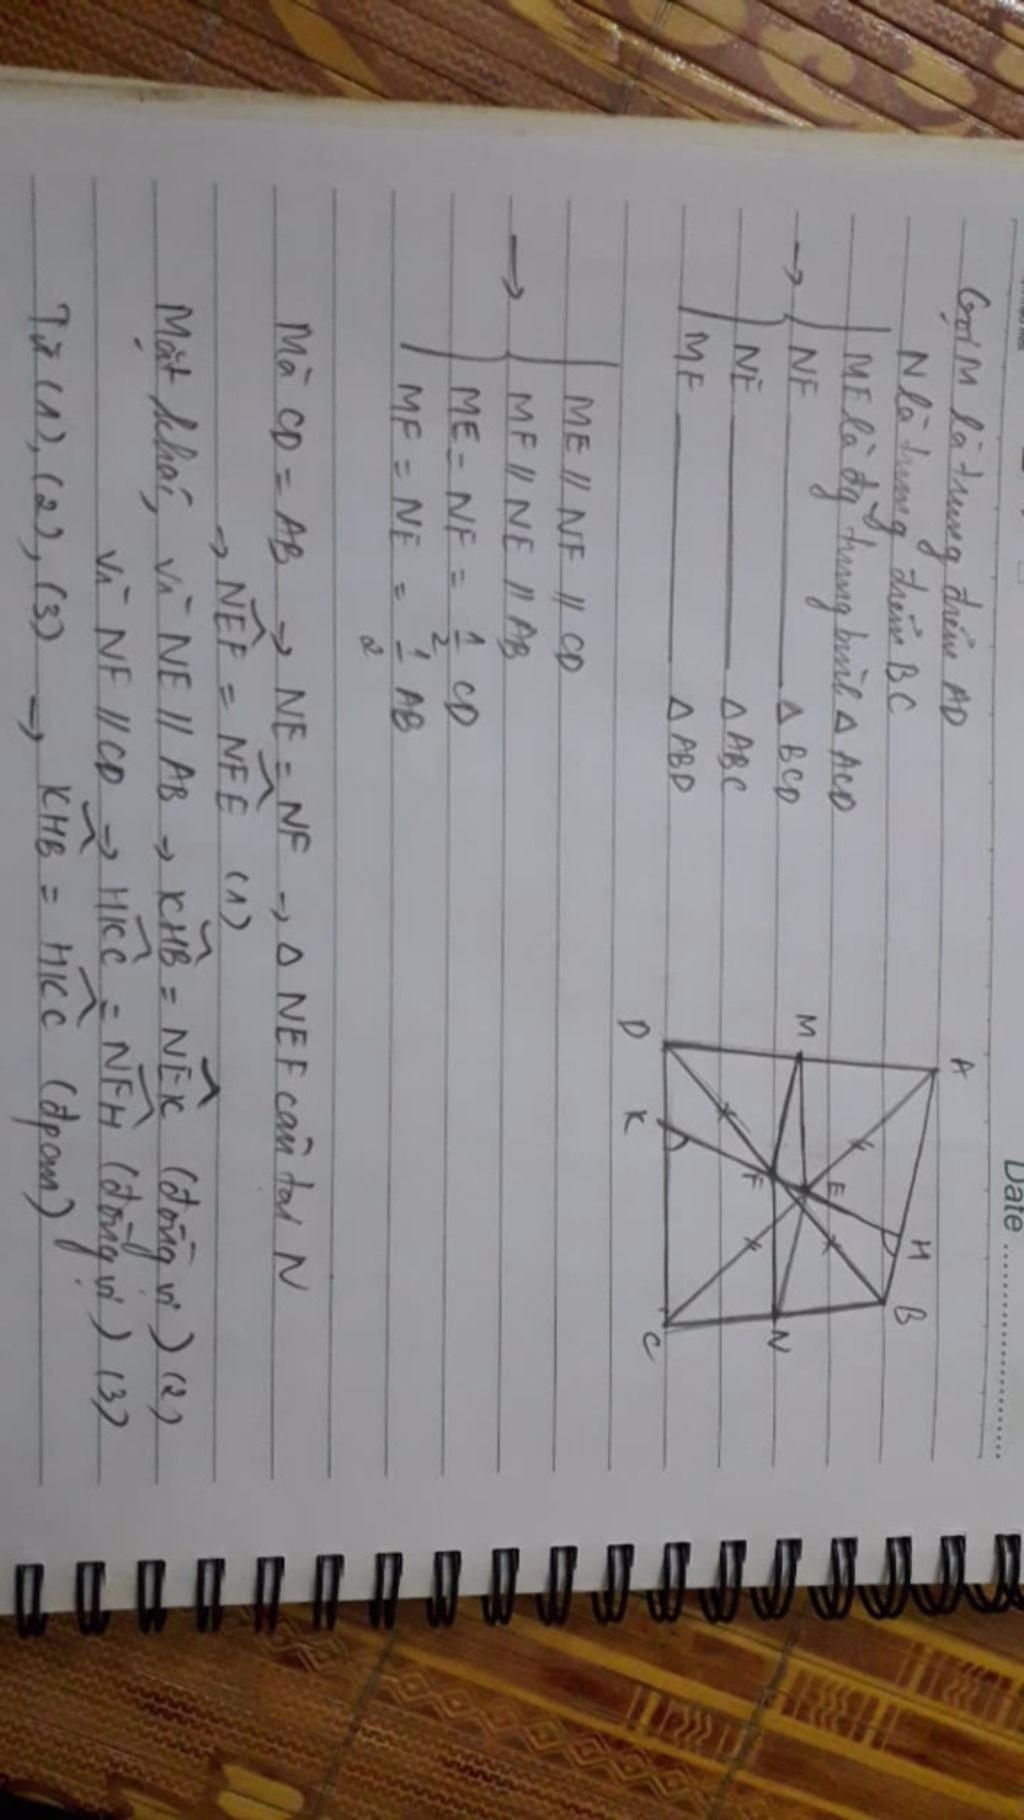 Date
Gọi M là trung điểm AD
N là trung điểm BC
→ ME là đg trung bình Δ ACD
NF ——— Δ BCD
NE ——— Δ ABC
MF ——— Δ ABD
A
H
B
M
E
F
N
D
K
C
→ ME // NF // CD
MF // NE // AB
ME = NF = 1/2 CD
MF = NE = 1/2 AB
Mà CD = AB → NE = NF → Δ NEF cân tại N
→ NEF = NFE (1)
Mặt khác, vì NE // AB → KHB = NEK (đồng vị) (2)
vì NF // CD → HKC = NFH (đồng vị) (3)
Từ (1), (2), (3) → KHB = HKC (đpcm)